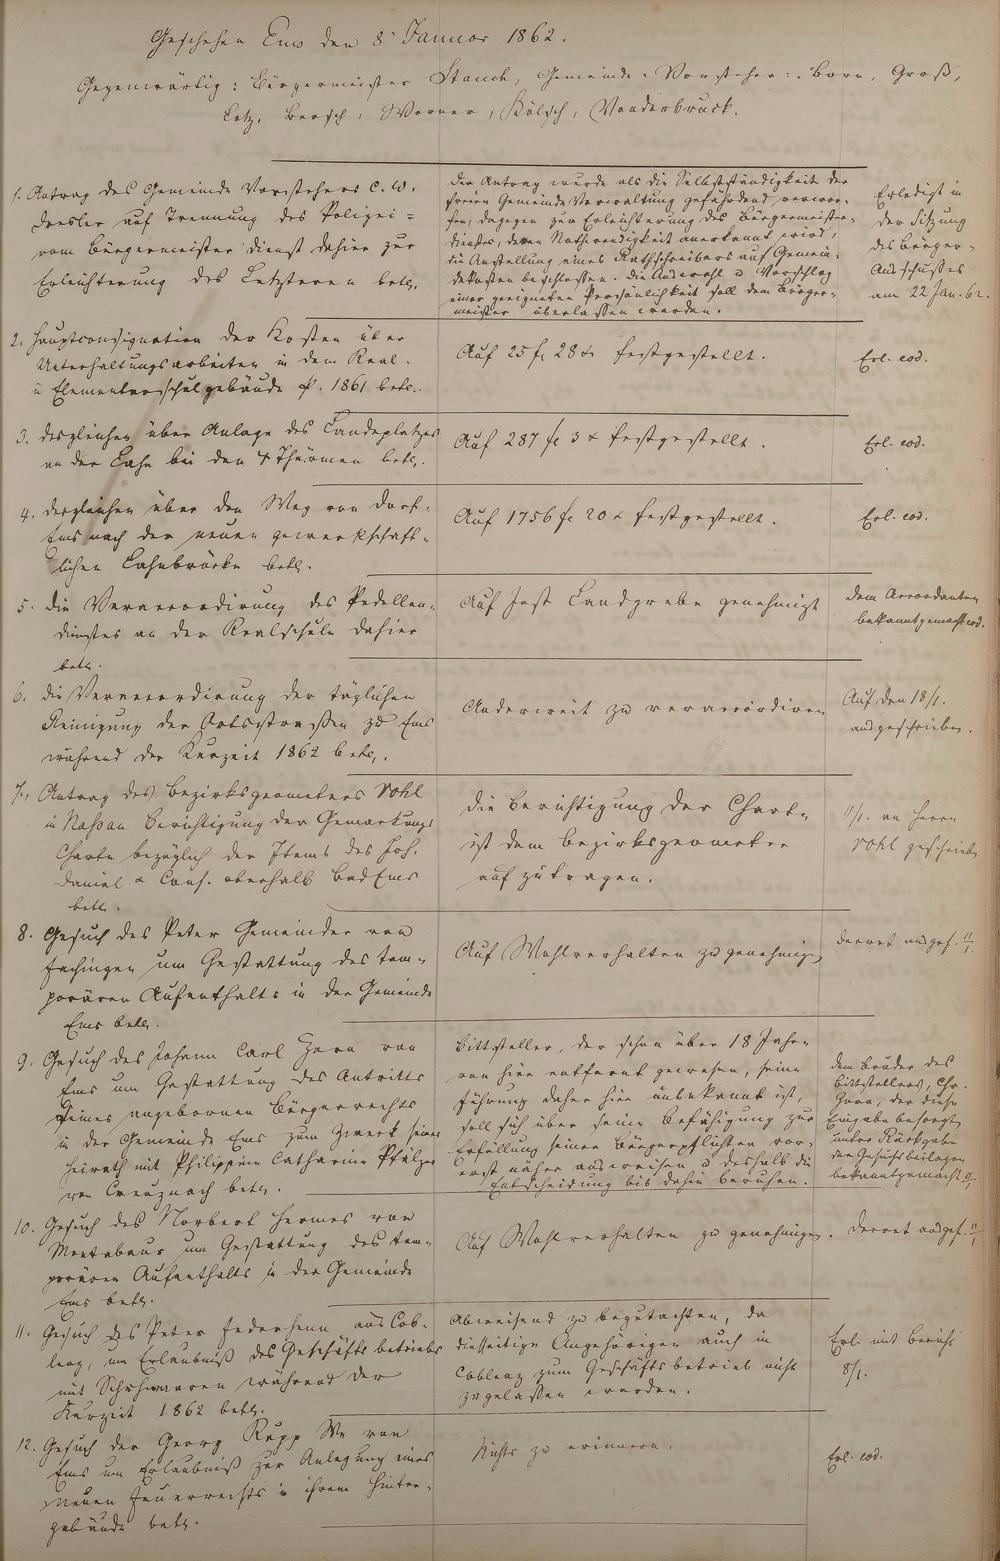 Geschehen Ems den 8. Januar 1862.
Gegenwärtig: Bürgermeister Stauch, Gemeinde-Vorsteher: Born, Groß,
Lotz, Bersch, Werner, Kölsch, Vonderbruck.
1. Antrag des Gemeinde Vorstehers C. W.
auf Trennung des Polizei=
vom Bürgermeister dienst dahier zur
Erleichterung des Letzteren betr.
Der Antrag wurde als die Selbstständigkeit der
freien Gemeinde Verwaltung gefährdend verwor-
fen, dagegen zur Erleichterung des Bürgermeister-
dienstes, deren Nothwendigkeit anerkannt wird,
die Anstellung eines Rathschreibers auf Gemein-
dekosten beschlossen. Die Auswahl u Vorschlag
einer geeigneten Persönlichkeit soll dem Bürger-
meister überlassen werden.
Erledigt in
der Sitzung
des Bürger-
Ausschußes
am 22 Jan. 62.
2. Hauptconsignation der Kosten über
Unterhaltungsarbeiten in dem Real-
u Elementarschulgebäude p. 1861 betr.
Auf 25 fl 28 x festgestellt.
Erl. eod.
3. desgleichen über Anlage des Landeplatzes
an der Lahn bei den 4 Thürmen betr.
Auf 287 fl 3 x festgestellt.
Erl. eod.
4. desgleichen über den Weg von Dorf-
Ems nach der neuen gewerkschaft-
lichen Lahnbrücke betr.
Auf 1756 fl 20 x festgestellt.
Erl. eod.
5. die Veraccordirung des Pedellen-
dienstes an der Realschule dahier
betr.
Auf Jost Landgrebe genehmigt
dem Accordanten
bekanntgemacht eod.
6. die Veraccordirung der täglichen
Reinigung der Ortsstraßen zu Ems
während der Kurzeit 1862 betr.
Anderweit zu veraccordiren
Auf den 18/1.
ausgeschrieben.
7. Antrag des Bezirksgeometers Vohl
in Naßau Berichtigung der Gemarkungs
Charte bezüglich der Items des Joh.
Daniel & Cons. oberhalb Bad Ems
betr.
die Berichtigung der Charte
ist dem Bezirksgeometer
aufzutragen.
11/1. an Herrn
Vohl geschrieben
8. Gesuch des Peter Gemeinder von
Fachingen um Gestattung des tem-
porären Aufenthalts in der Gemeinde
Ems betr.
Auf Wohlverhalten zu genehmigen
Decret ausgef. 11/1.
9. Gesuch des Johann Carl Zorn von
Ems um Gestattung des Antritts
seines angebornen Bürgerrechts
in der Gemeinde Ems zum Zweck seiner
Heirath mit Philippine Catharine Pfälzer
von Creuznach betr.
Bittsteller, der schon über 18 Jahre
von hier entfernt gewesen, seine
Führung daher hier unbekannt ist,
soll sich über seine Befähigung zur
Erfüllung seiner Bürgerpflichten vor-
erst näher ausweisen u deshalb die
Entscheidung bis dahin beruhen.
dem Bruder des
Bittstellers, Chr.
Zorn, der diese
Eingabe besorgte,
unter Rückgabe
der Gesuchsbeilagen
bekanntgemacht
10. Gesuch des Norbert Hermes von
Montabaur um Gestattung des tem-
porären Aufenthalts in der Gemeinde
Ems betr.
Auf Wohlverhalten zu genehmigen.
Decret ausgef. 11/1
11. Gesuch des Peter Federhenn aus Cob-
lenz, um Erlaubniß des Geschäftsbetriebs
mit Schuhwaaren während der
Kurzeit 1862 betr.
Abweisend zu begutachten, da
diesseitige Angehörigen auch in
Coblenz zum Geschäftsbetrieb nicht
zugelassen werden.
Erl. mit Bericht
8/1.
12. Gesuch der Georg Rupp We von
Ems um Erlaubniß zur Anlegung eines
neuen Feuerrechts in ihrem Hinter-
gebäude betr.
Nichts zu erinnern.
Erl. eod.